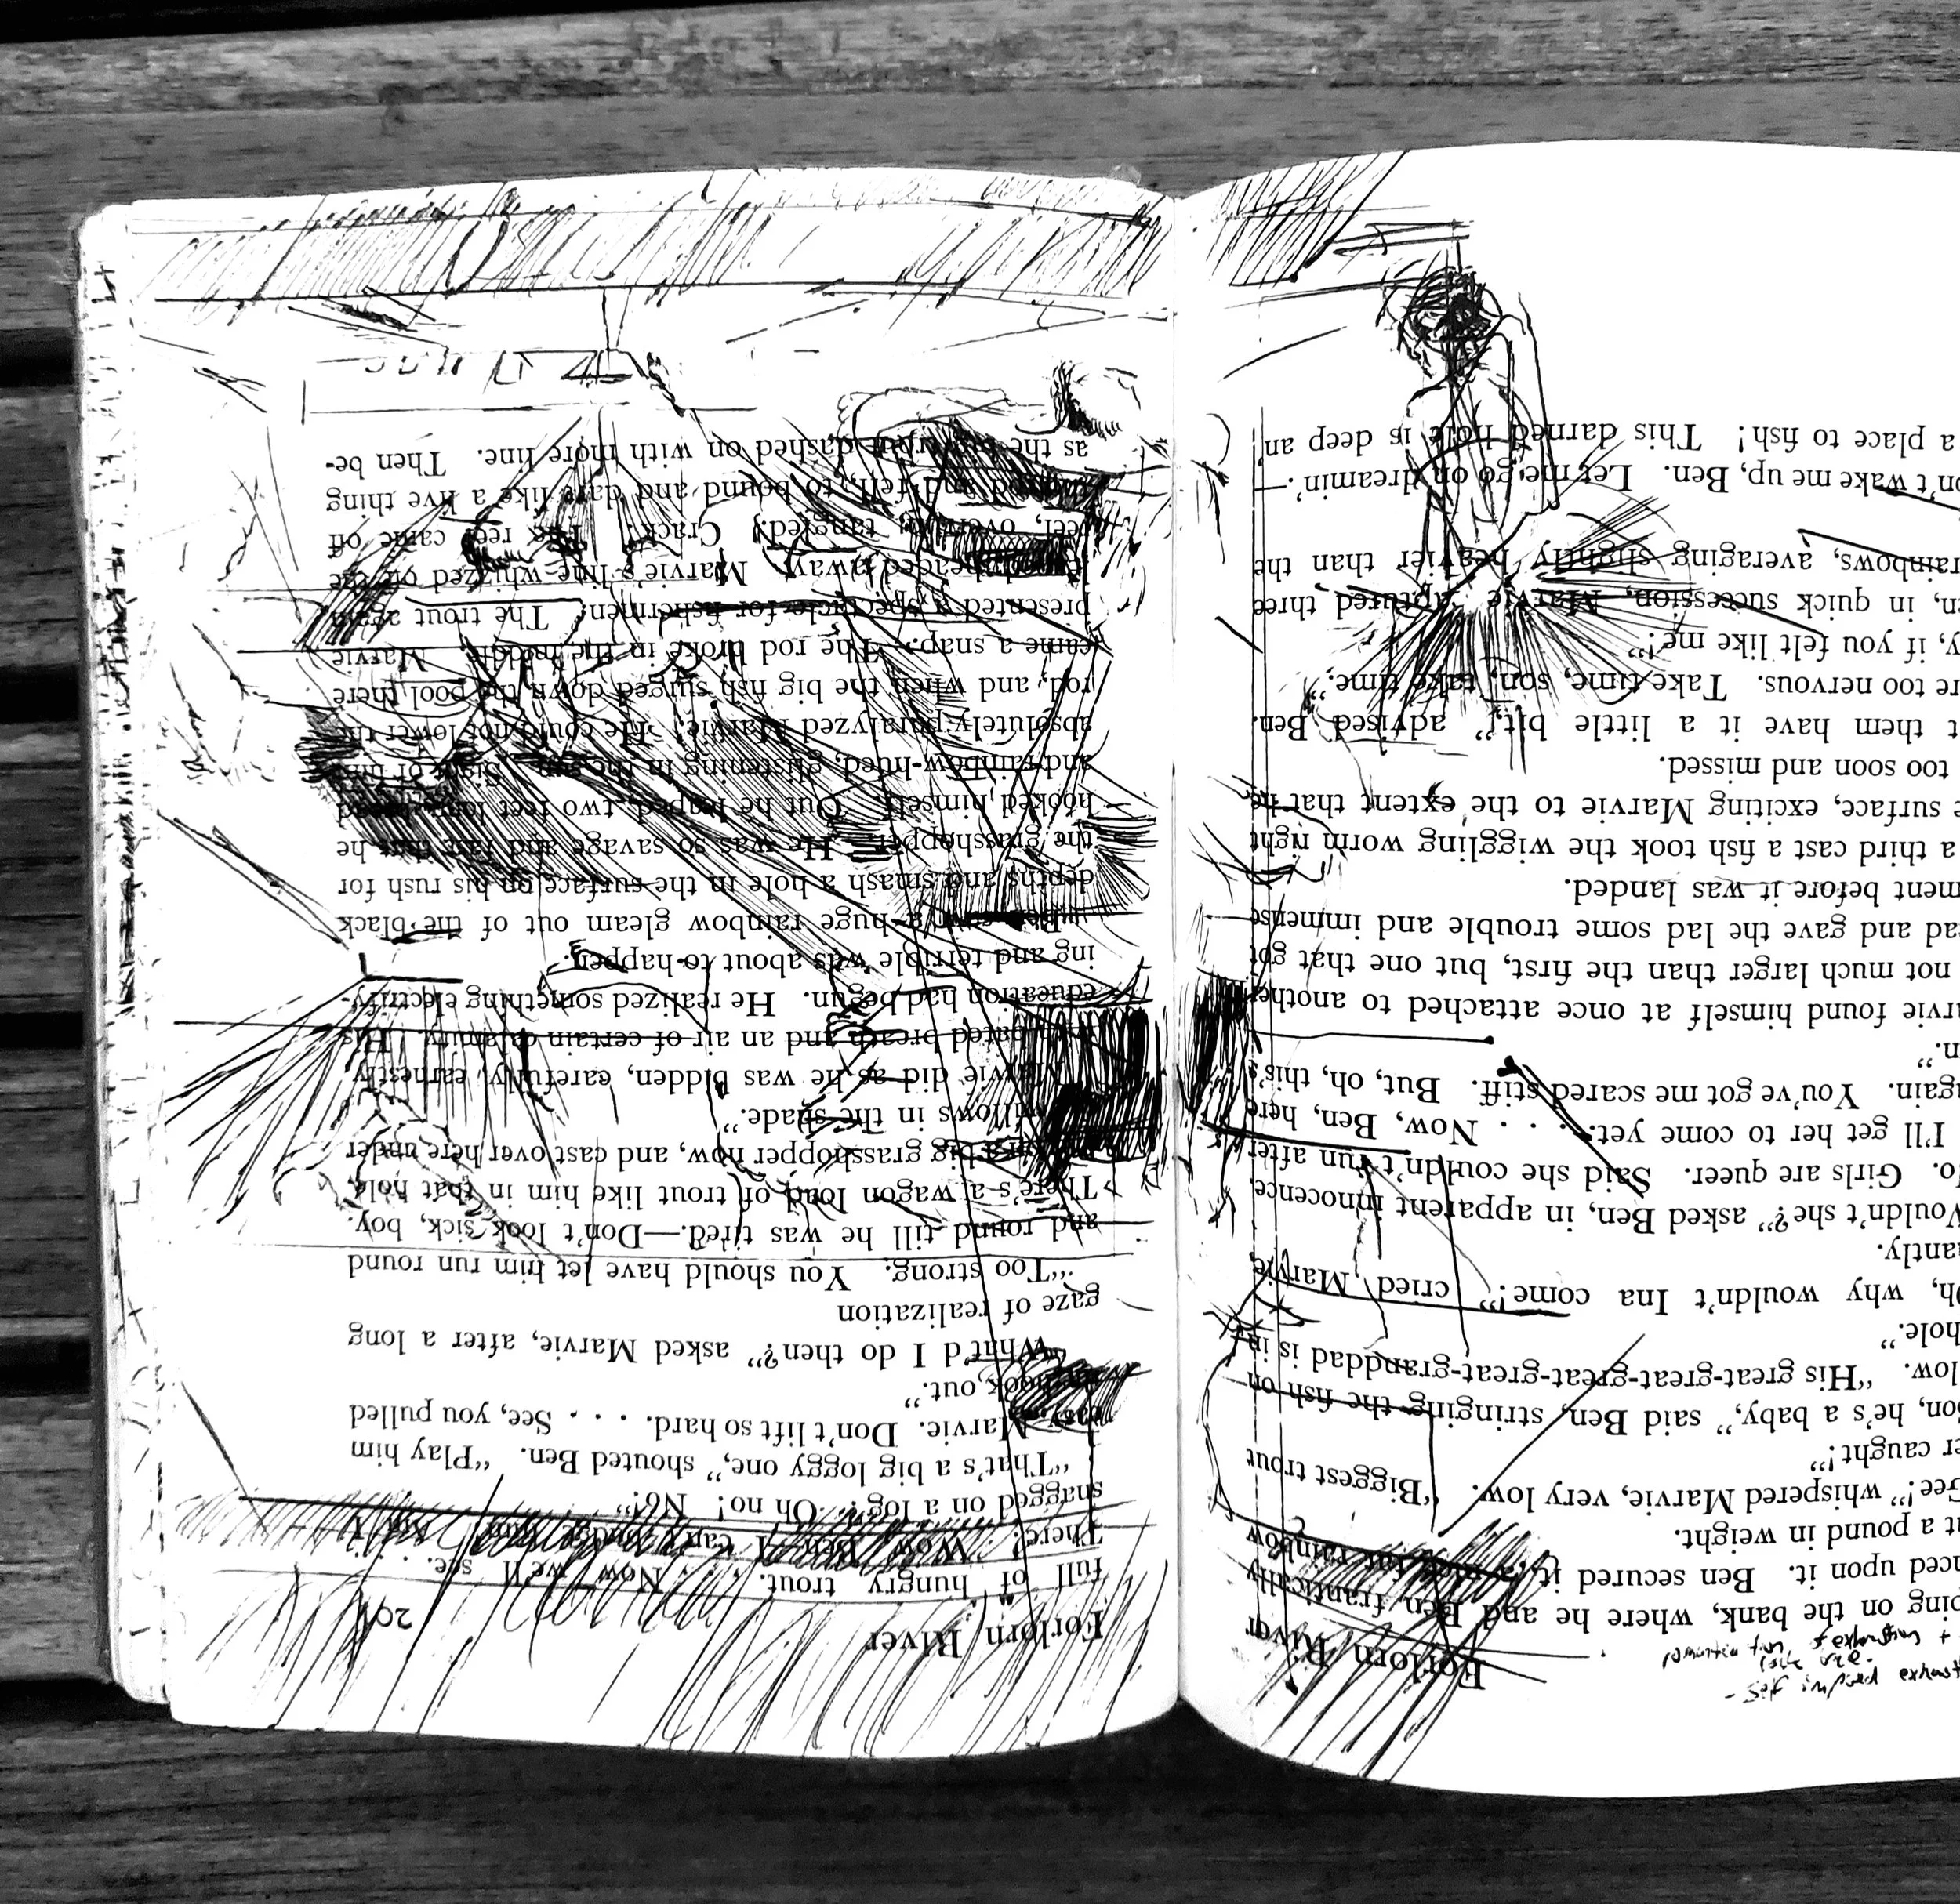 Forlorn River
ping on the bank, where he and Ben frantically
nced upon it. Ben secured it, a nice fat rainbow
t a pound in weight.
Gee!" whispered Marvie, very low. "Biggest trout
er caught!"
son, he's a baby," said Ben, stringing the fish on
low. "His great-great-great-great-granddad is in
hole."
Oh, why wouldn't Ina come!" cried Marvie,
antly.
Wouldn't she?" asked Ben, in apparent innocence.
o. Girls are queer. Said she couldn't run after
I'll get her to come yet. . . . Now, Ben, here
again. You've got me scared stiff. But, oh, this's
n."
arvie found himself at once attached to another
not much larger than the first, but one that got
ad and gave the lad some trouble and immense
ment before it was landed.
a third cast a fish took the wiggling worm right
e surface, exciting Marvie to the extent that he
too soon and missed.
t them have it a little bit," advised Ben.
re too nervous. Take time, son, take time."
y, if you felt like me!"
en, in quick succession, Marvie captured three
rainbows, averaging slightly heavier than the
on't wake me up, Ben. Let me go on dreamin'.—
a place to fish! This darned hole is deep an'
Forlorn River
full of hungry trout. . . . Now we'll see. . . .
There! Wow, Ben—I can't budge him! Am I
snagged on a log? Oh no! No!"
"That's a big loggy one," shouted Ben. "Play him
easy, Marvie. Don't lift so hard. . . . See, you pulled
hook out."
"What'd I do then?" asked Marvie, after a long
gaze of realization
"Too strong. You should have let him run round
and round till he was tired.—Don't look sick, boy.
There's a wagon load of trout like him in that hole.
big grasshopper now, and cast over here under
willows in the shade."
Marvie did as he was bidden, carefully, earnestly
bated breath and an air of certain calamity. His
education had begun. He realized something electrify-
ing and terrible was about to happen.
Ben saw a huge rainbow gleam out of the black
depths and smash a hole in the surface on his rush for
the grasshopper. He was so savage and fast that he
hooked himself. Out he leaped, two feet long,
and rainbow-hued, glistening in the sun. Sight of him
absolutely paralyzed Marvie. He could not lower the
rod, and when the big fish surged down the pool there
came a snap. The rod broke in the middle. Marvie
presented a spectacle for fishermen. The trout again
headed away. Marvie's line whizzed off the
reel, overrun, tangled. Crack! The reel came off
and fell, to bound and dart like a live thing
as the big trout dashed on with more line. Then be-